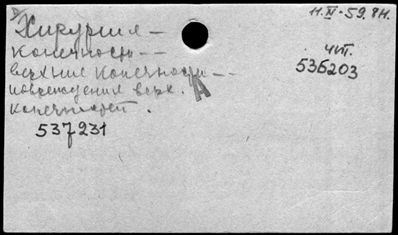 11.XI-59. 8н.
Хирургия —
конечности — —
чит.
536203
верхние конечности — —
повреждения верх.
конечностей.
537231